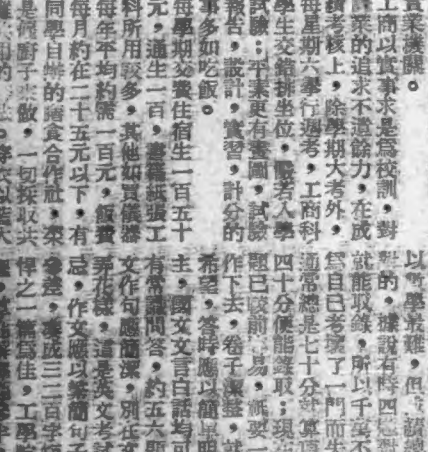 實業機關。
工商以實事求是爲校訓，對
業的追求不遺餘力，在成
績考核上，除學期大考外，
每星期六舉行週考，工商科
學生交錯排坐位，儼若入學
試驗；平業更有畫圖，試驗
報告，設計，實習，計分的
事多如吃飯。
每學期交費住宿生一百五十
元，通生一百，書籍紙張工
科所用較多，其他如買儀器
每年平均約需一百元，飯費
每月約在二十五元以下，有
同學自辦的膳食合作社，
是僱廚子來做，一切採取共
以數學最難，但
對的，據說有時四
就能收錄，所以千萬不
爲自己考壞了一門而生
通常總是七十分就算
四十分便能錄取；現
題已較前易，祇要一
作下去，卷子潔整，就
希望，答時應以簡單明
主，國文文言白話均可
有常識問答，約五六題
文作句應簡潔，別任
弄花樣，這是英文考試
忌，作文應以簡句子
成三二百字
悍之一篇爲佳，工學院